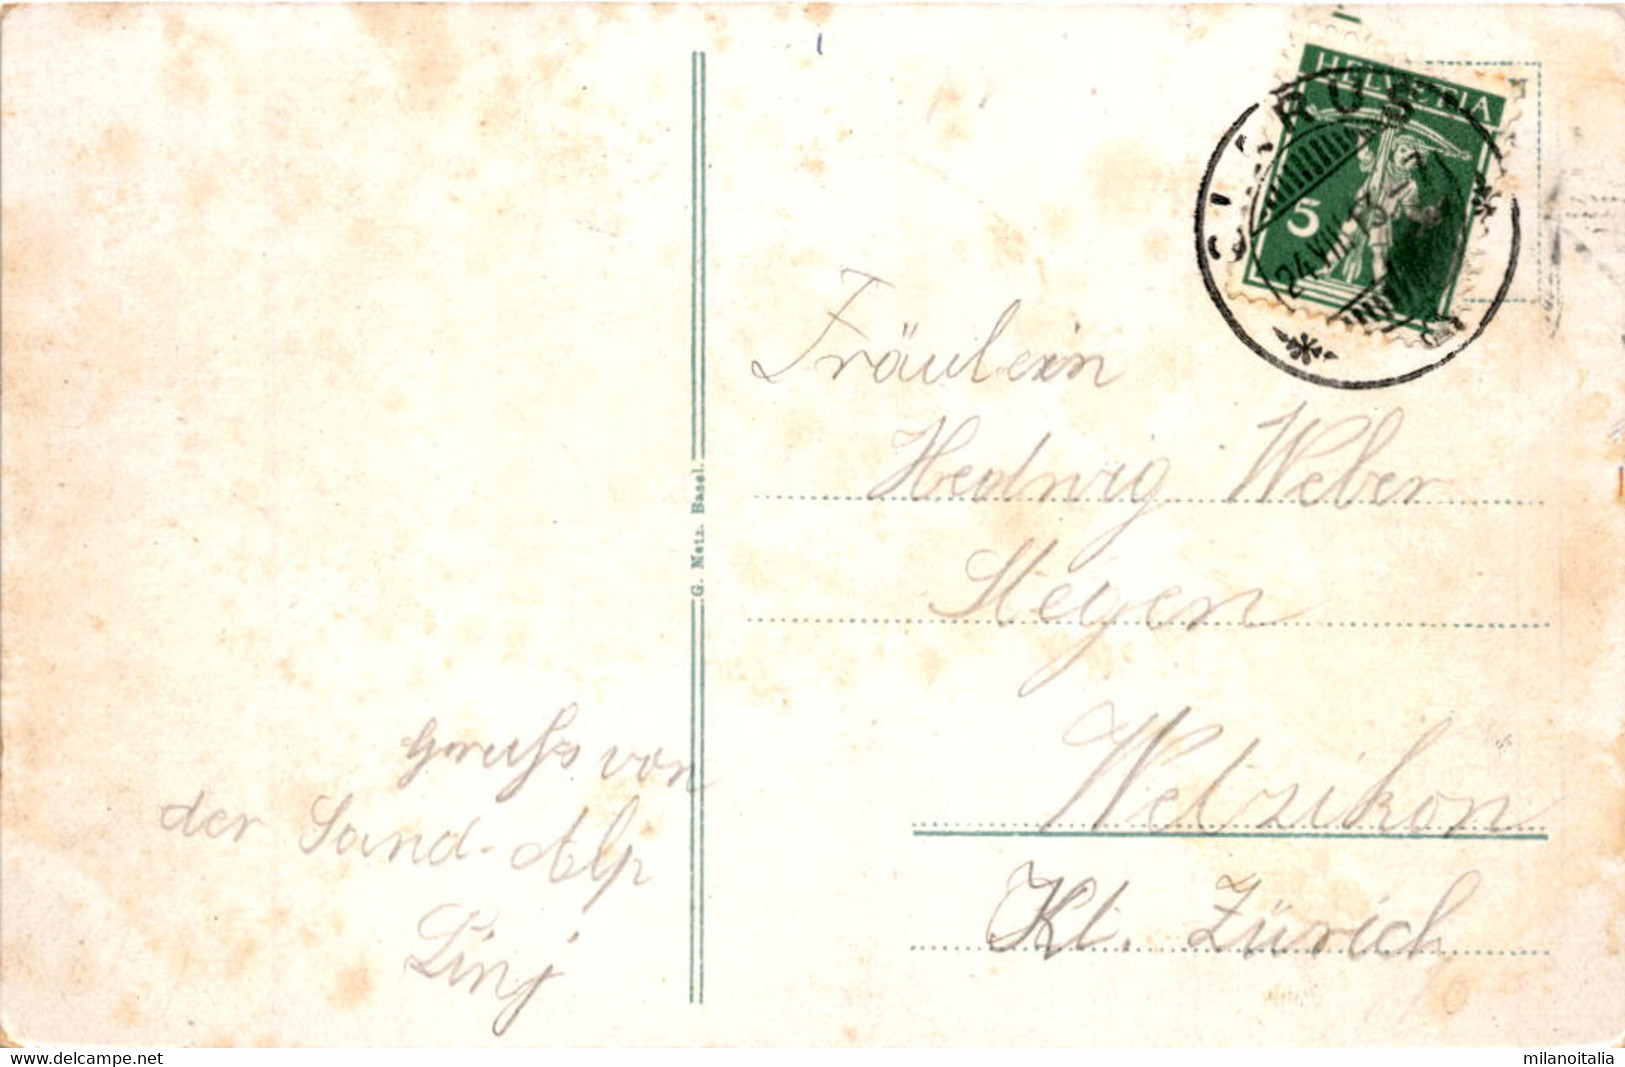 HELVETIA
5
GLARUS
24.VIII.13
Fräulein
Hedwig Weber
Stegen
Wetzikon
Kt. Zürich
G. Metz. Basel.
Gruss von
der Sand-Alp
Linj
www.delcampe.net
milanoitalia